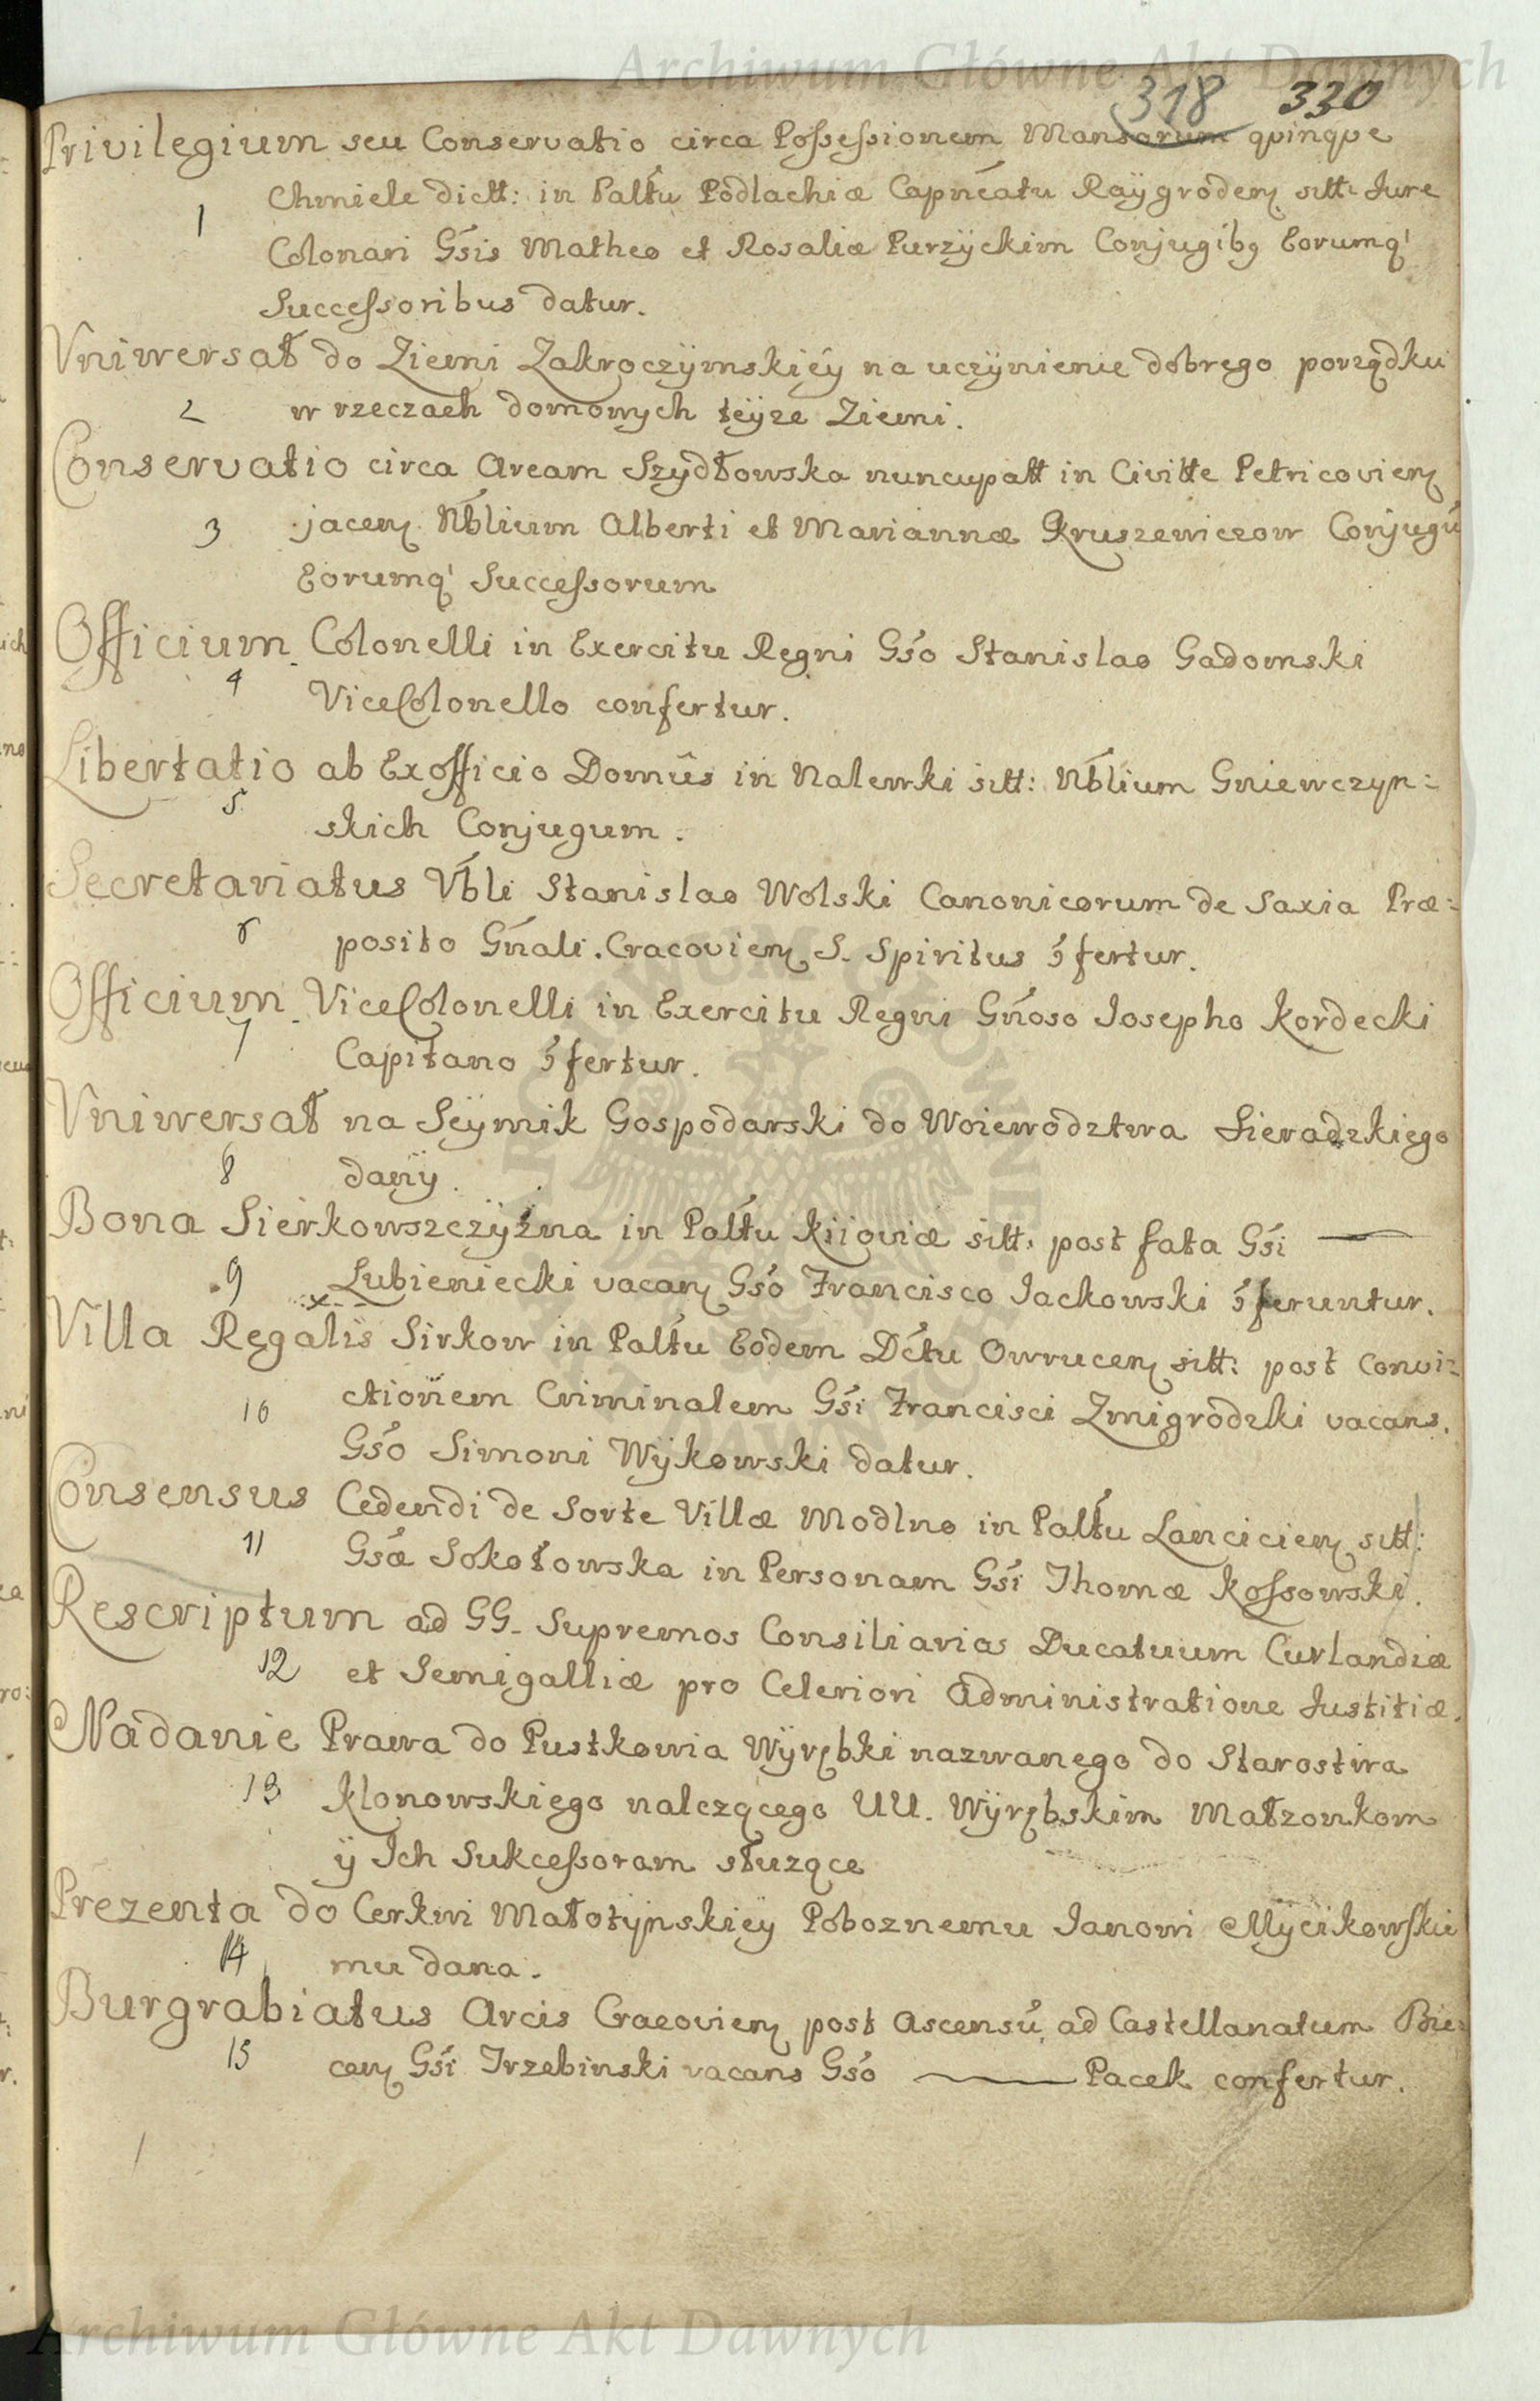 Archiwum Główne Akt Dawnych
318 330
Privilegium seu Conservatio circa Possessionem Mansorum quinque
1 Chmiele dictt: in Palttu Podlachiæ Capneatu Raÿgroden sitt: Jure
Colonari Gsis Matheo et Rosaliæ Purzÿckim Conjugibg Eorumq'
Successoribus datur.
Vniwersał do Ziemi Zakroczÿmskiéy na uczÿnienie dobrego porządku
2 w rzeczach domowych teÿze Ziemi.
Conservatio circa Aream Szydłowska nuncupatt in Civitte Petricovien
3 jacen Nblium Alberti et Mariannæ Kruszewiczow Conjugū
Eorumq' Successorum
Officium Colonelli in Exercitu Regni Gso Stanislao Gadomski
4 ViceColonello confertur.
Libertatio ab Exofficio Domûs in Nalewki sitt: Nblium Gniewczyn=
5 skich Conjugum.
Secretariatus Vbli Stanislao Wolski Canonicorum de Saxia Præ=
6 posito Gnali. Cracovien S. Spiritus ɔfertur.
Officium ViceColonelli in Exercitu Regni Gnoso Josepho Kordecki
7 Capitano ɔfertur.
Vniwersał na Seÿmik Gospodarski do Woiewodztwa Sieradzkiego
8 danÿ.
Bona Sierkowszczÿzna in Palttu Kiioviæ sitt: post fata Gsi —
9 Lubieniecki vacan Gso Francisco Jackowski ɔferuntur.
Villa Regalis Sirkow in Palttu Eodem Dctu Owrucen sitt: post Convi=
10 ctionem Criminalem Gsi Francisci Zmigrodzki vacans.
Gso Simoni Wÿkowski datur.
Consensus Cedendi de Sorte Villæ Modlno in Palttu Lancicien sitt:
11 Gsæ Sokołowska in Personam Gsi Thomæ Kossowski.
Rescriptum ad GG. Supremos Consiliarios Ducatuum Curlandiæ
12 et Semigalliæ pro Celeriori Administratione Justitiæ.
Nadanie Prawa do Pustkowia Wÿrębki nazwanego do Starostwa
13 Klonowskiego nalezącego UU. Wÿrębskim Małzonkom
ÿ Jch Sukcessorom słuzące
Prezenta do Cerkwi Małotÿnskieÿ Poboznemu Janowi Mÿcikowskie
14 mu dana.
Burgrabiatus Arcis Cracovien post Ascensū ad Castellanatum Bie=
15 cen Gsi Trzebinski vacans Gso — Pacek confertur.
Archiwum Główne Akt Dawnych